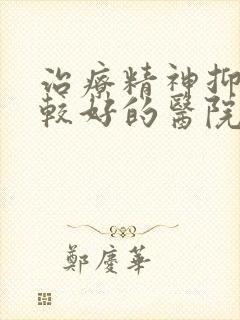 治療精神抑
較好的醫院
鄭慶華